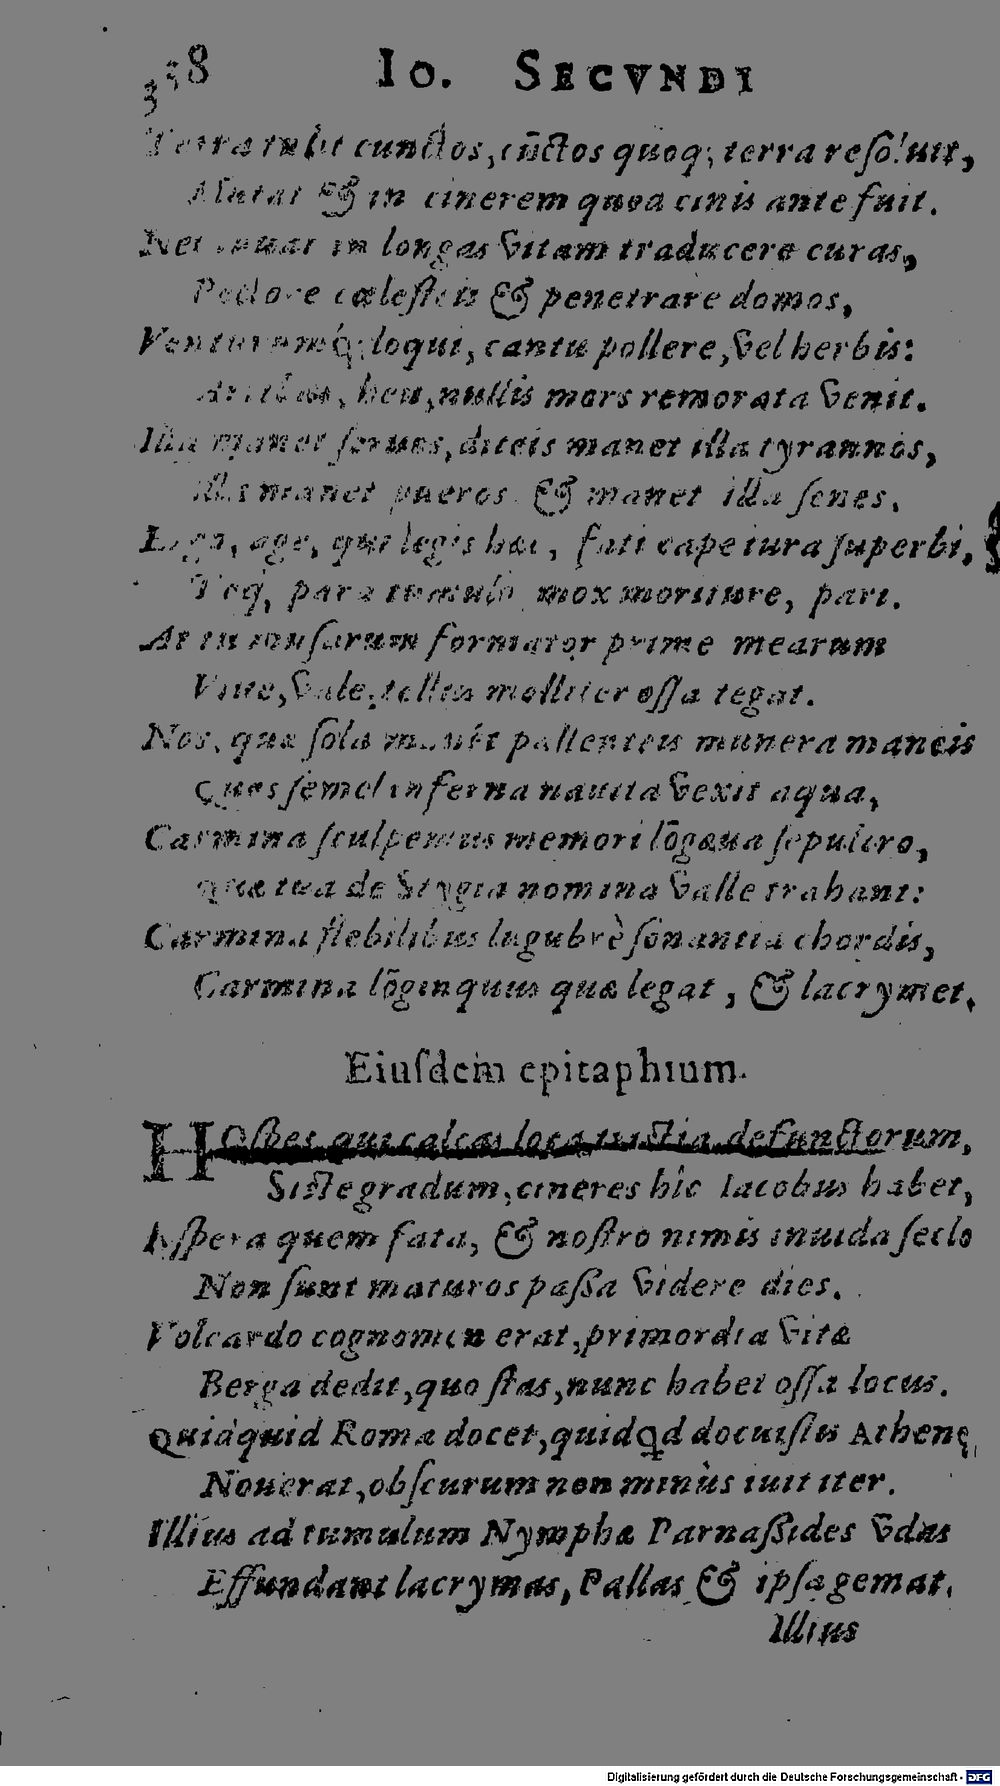 338 Io. SECVNDI
Terra tulit cunctos, cūctos quoq; terra resoluit,
Mutat & in cinerem quod cinis ante fuit.
Nec iuuat in longas vitam traducere curas,
Pectore cælesteis & penetrare domos,
Venturumq́; loqui, cantu pollere, vel herbis:
Artibus, heu, nullis mors remorata venit.
Illa manet seruos, diteis manet illa tyrannos,
Illa manet pueros & manet illa senes.
I, age, qui legis hæc, fati cape iura superbi,
Teq́, para tumulo mox moriture, pari.
At tu musarum formator prime mearum
Viue, vale, tellus molliter ossa tegat.
Nos, quæ sola pallenteis munera maneis
Quos semel inferna nauita vexit aqua,
Carmina sculpemus memori lōgæua sepulcro,
quæ tua de Stygia nomina valle trahant:
Carmina flebilibus lugubrè sonantia chordis,
Carmina lōginquus quæ legat, & lacrymet.
Eiusdem epitaphium.
HOspes qui calcas loca tristia defunctorum,
Siste gradum, cineres hic Iacobus habet,
Aspera quem fata, & nostro nimis inuida seclo
Non sunt maturos passa videre dies.
Volcardo cognomen erat, primordia vitæ
Berga dedit, quo stas, nunc habet ossa locus.
Quidquid Roma docet, quidꝗd docuistis Athenę,
Nouerat, obscurum non minùs iuit iter.
Illius ad tumulum Nymphæ Parnassides vdas
Effundant lacrymas, Pallas & ipsa gemat.
Illius
Digitalisierung gefördert durch die Deutsche Forschungsgemeinschaft - DFG